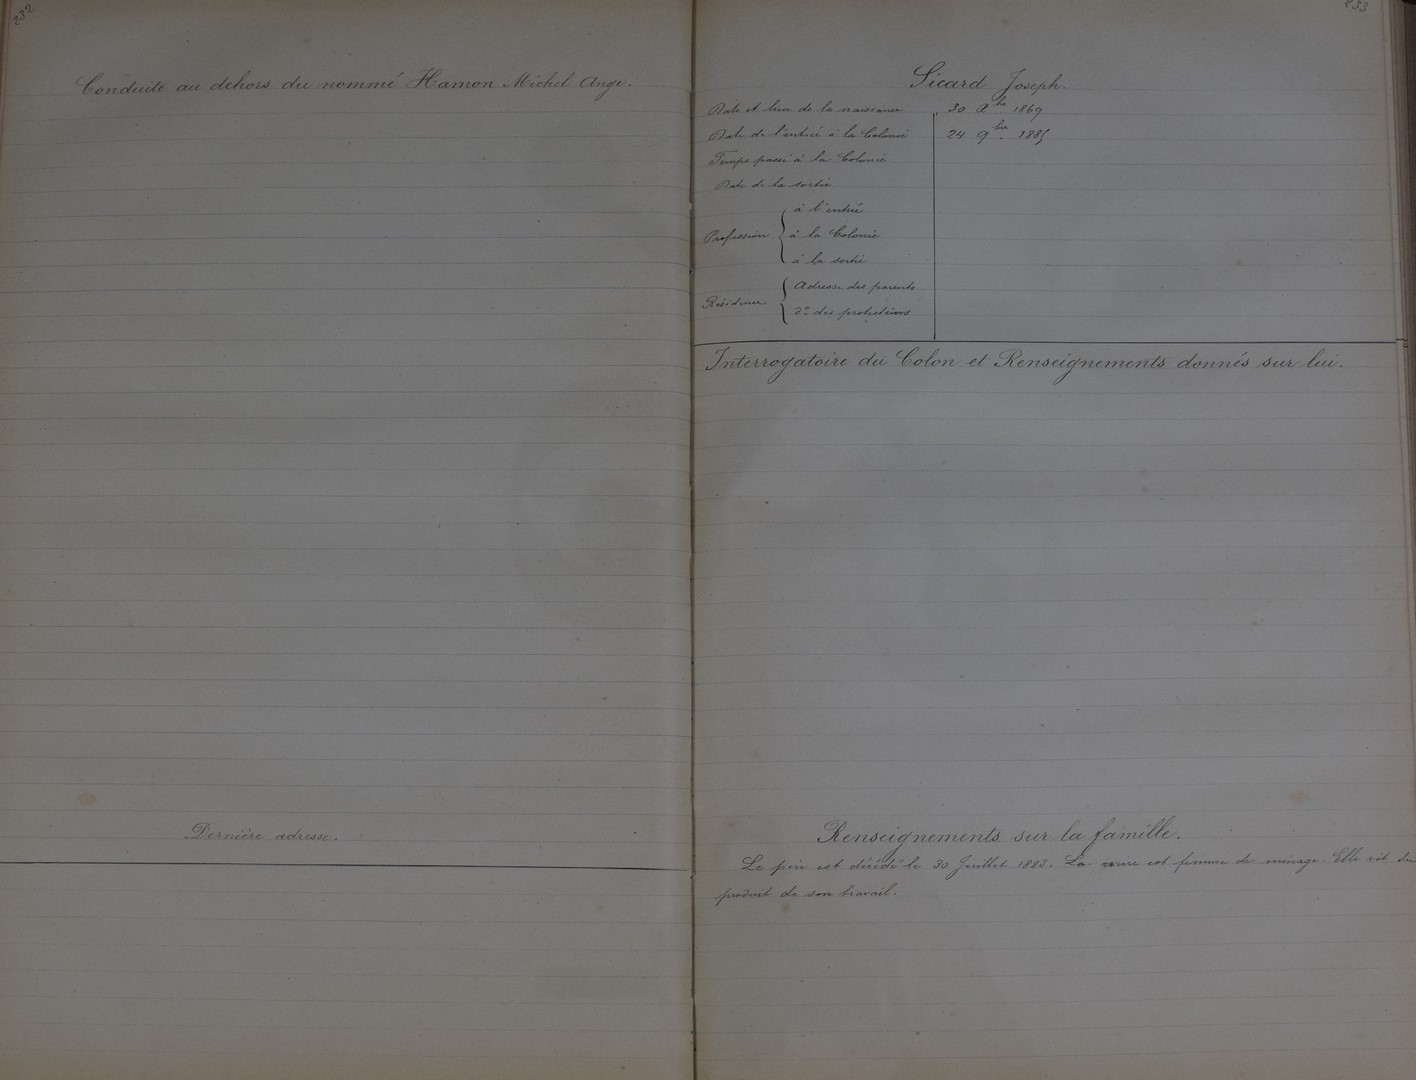 232
Conduite au dehors du nommé Hamon Michel Ange.
Dernière adresse.
233
Sicard Joseph.
Date et lieu de la naissance 30 Xbre 1869
Date de l'entrée à la Colonie 24 9bre 1885
Temps passé à la Colonie
Date de la sortie
Profession
à l'entrée
à la Colonie
à la sortie
Résidence
Adresse des parents
do des protecteurs
Interrogatoire du Colon et Renseignements donnés sur lui.
Renseignements sur la famille.
Le père est décédé le 30 Juillet 1882. La mère est femme de ménage. Elle vit du
produit de son travail.